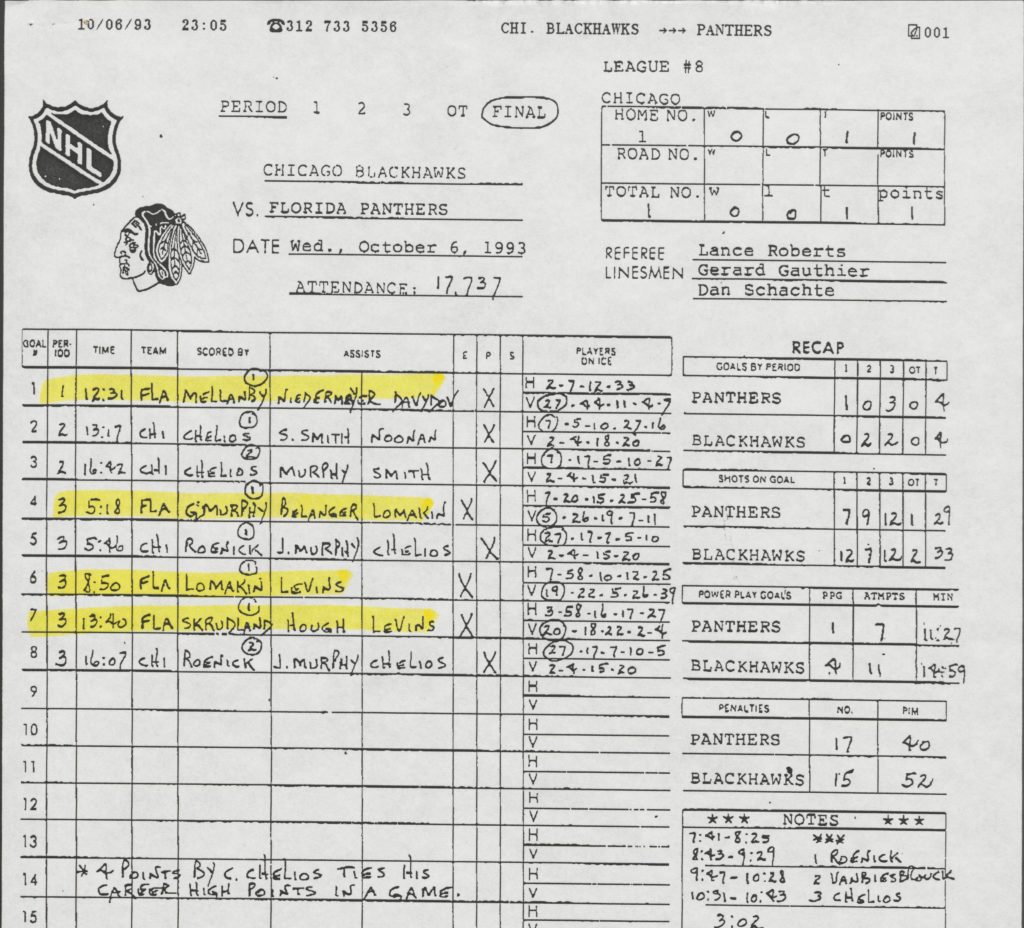 10/06/93 23:05 ☎312 733 5356 CHI. BLACKHAWKS →→→ PANTHERS 001
LEAGUE #8
NHL
PERIOD 1 2 3 OT FINAL
CHICAGO BLACKHAWKS
VS. FLORIDA PANTHERS
DATE Wed., October 6, 1993
ATTENDANCE: 17,737
CHICAGO
HOME NO. W L T POINTS
1 0 0 1 1
ROAD NO. W L T POINTS
TOTAL NO. W l t points
1 0 0 1 1
REFEREE Lance Roberts
LINESMEN Gerard Gauthier
Dan Schachte
GOAL # PERIOD TIME TEAM SCORED BY ASSISTS E P S PLAYERS ON ICE
1 1 12:31 FLA MELLANBY (1) NIEDERMEYER DAVYDOV X H 2-7-12-33
V (27)-44-11-4-7
2 2 13:17 CHI CHELIOS (1) S. SMITH NOONAN X H (7)-5-10-27-16
V 2-4-18-20
3 2 16:42 CHI CHELIOS (2) MURPHY SMITH X H (7)-17-5-10-27
V 2-4-15-21
4 3 5:18 FLA G. MURPHY (1) BELANGER LOMAKIN X H 7-20-15-25-58
V (5)-26-19-7-11
5 3 5:46 CHI ROENICK (1) J. MURPHY CHELIOS X H (27)-17-7-5-10
V 2-4-15-20
6 3 8:50 FLA LOMAKIN (1) LEVINS X H 7-58-10-12-25
V (19)-22-5-26-39
7 3 13:40 FLA SKRUDLAND (1) HOUGH LEVINS X H 3-58-16-17-27
V (20)-18-22-2-4
8 3 16:07 CHI ROENICK (2) J. MURPHY CHELIOS X H (27)-17-7-10-5
V 2-4-15-20
9 H
V
10 H
V
11 H
V
12 H
V
13 H
V
14 H
V
* 4 POINTS BY C. CHELIOS TIES HIS
CAREER HIGH POINTS IN A GAME.
15 H
RECAP
GOALS BY PERIOD 1 2 3 OT T
PANTHERS 1 0 3 0 4
BLACKHAWKS 0 2 2 0 4
SHOTS ON GOAL 1 2 3 OT T
PANTHERS 7 9 12 1 29
BLACKHAWKS 12 7 12 2 33
POWER PLAY GOALS PPG ATMPTS MIN
PANTHERS 1 7 11:27
BLACKHAWKS 4 11 14:59
PENALTIES NO. PIM
PANTHERS 17 40
BLACKHAWKS 15 52
*** NOTES ***
7:41-8:25 ***
8:43-9:29 1 ROENICK
9:47-10:28 2 VANBIESBROUCK
10:31-10:43 3 CHELIOS
3:02